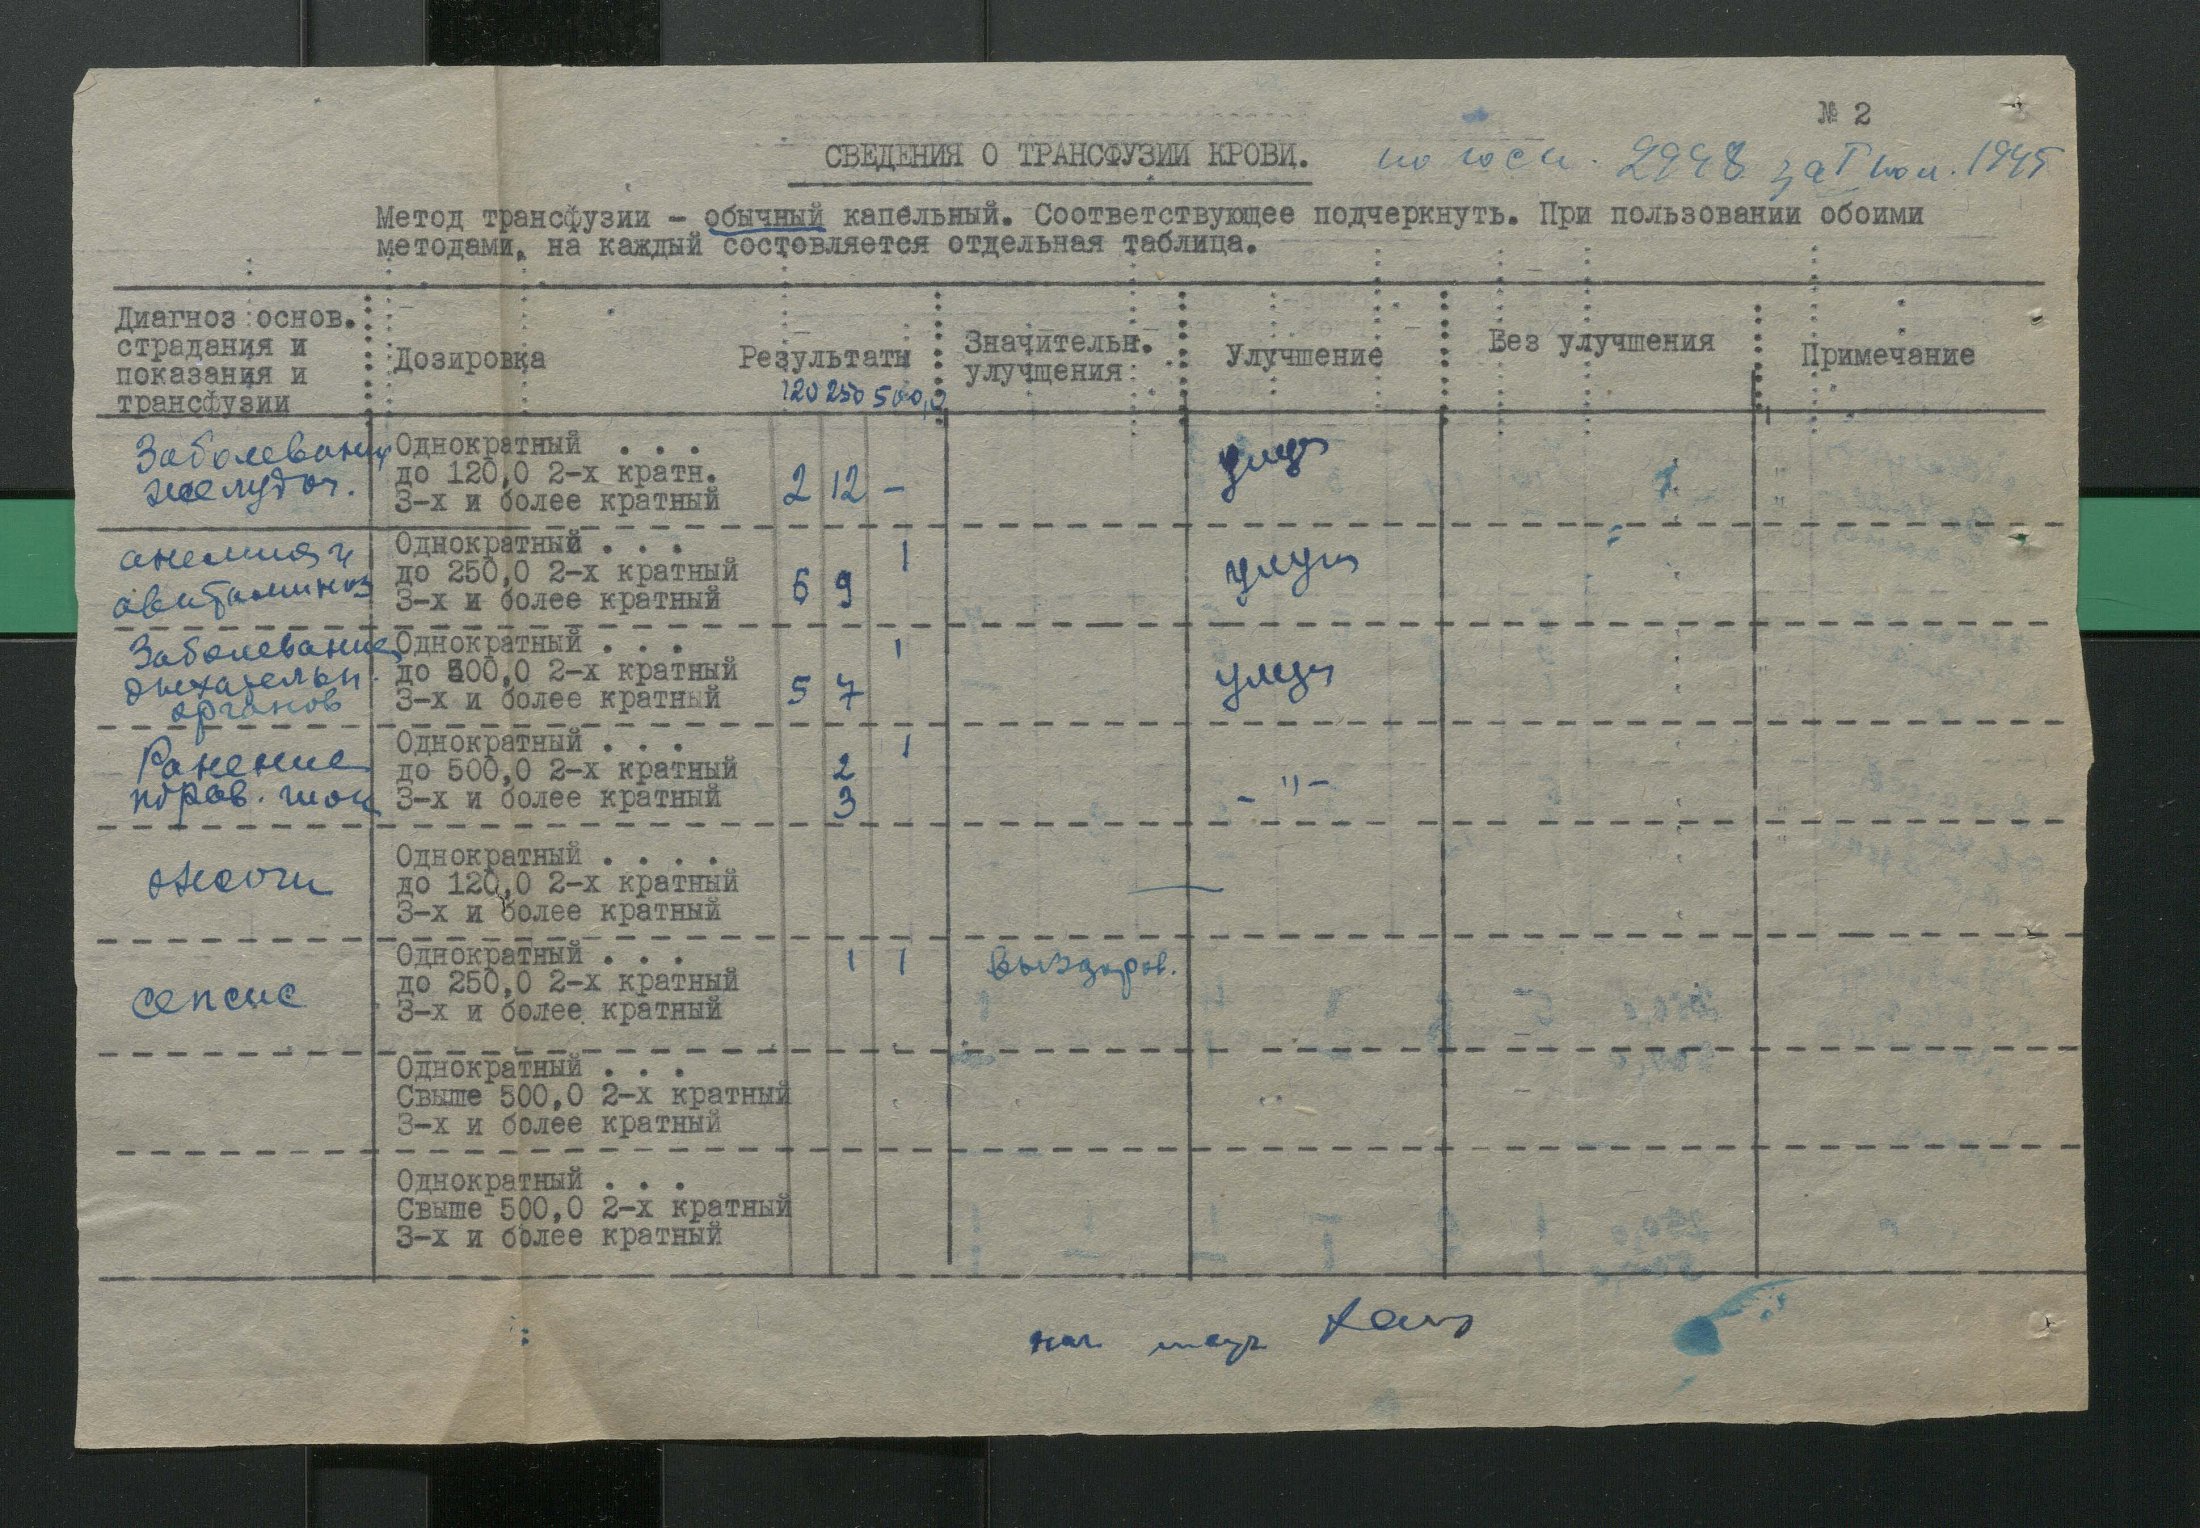 № 2
СВЕДЕНИЯ О ТРАНСФУЗИИ КРОВИ. по госп. 2948 за I пол. 1945
Метод трансфузии – обычный капельный. Соответствующее подчеркнуть. При пользовании обоими
методами, на каждый состовляется отдельная таблица.
Диагноз основ.
страдания и
показания и
трансфузии
Дозировка
Результаты
120 250 500,0
Значительн.
улучшения
Улучшение
Без улучшения
Примечание
Заболевания
желудоч.
Однократный . . .
до 120,0 2-х кратн.
3-х и более кратный
2 12 –
улуч
анемия и
авитаминоз
Однократный . . .
до 250,0 2-х кратный
3-х и более кратный
1
6 9
улучш
Заболевание
дыхательн.
органов
Однократный . . .
до 500,0 2-х кратный
3-х и более кратный
1
5 7
улуч
Ранение
травв. шок
Однократный . . .
до 500,0 2-х кратный
3-х и более кратный
1
2
3
– " –
ожоги
Однократный . . . .
до 120,0 2-х кратный
3-х и более кратный
—
сепсис
Однократный . . .
до 250,0 2-х кратный
3-х и более кратный
1 1
выздоров.
Однократный . . .
Свыше 500,0 2-х кратный
3-х и более кратный
Однократный . . .
Свыше 500,0 2-х кратный
3-х и более кратный
нач